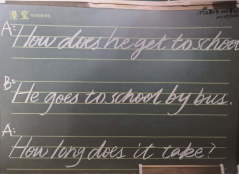 A: How does he get to school
B: He goes to school by bus.
A: How long does it take?